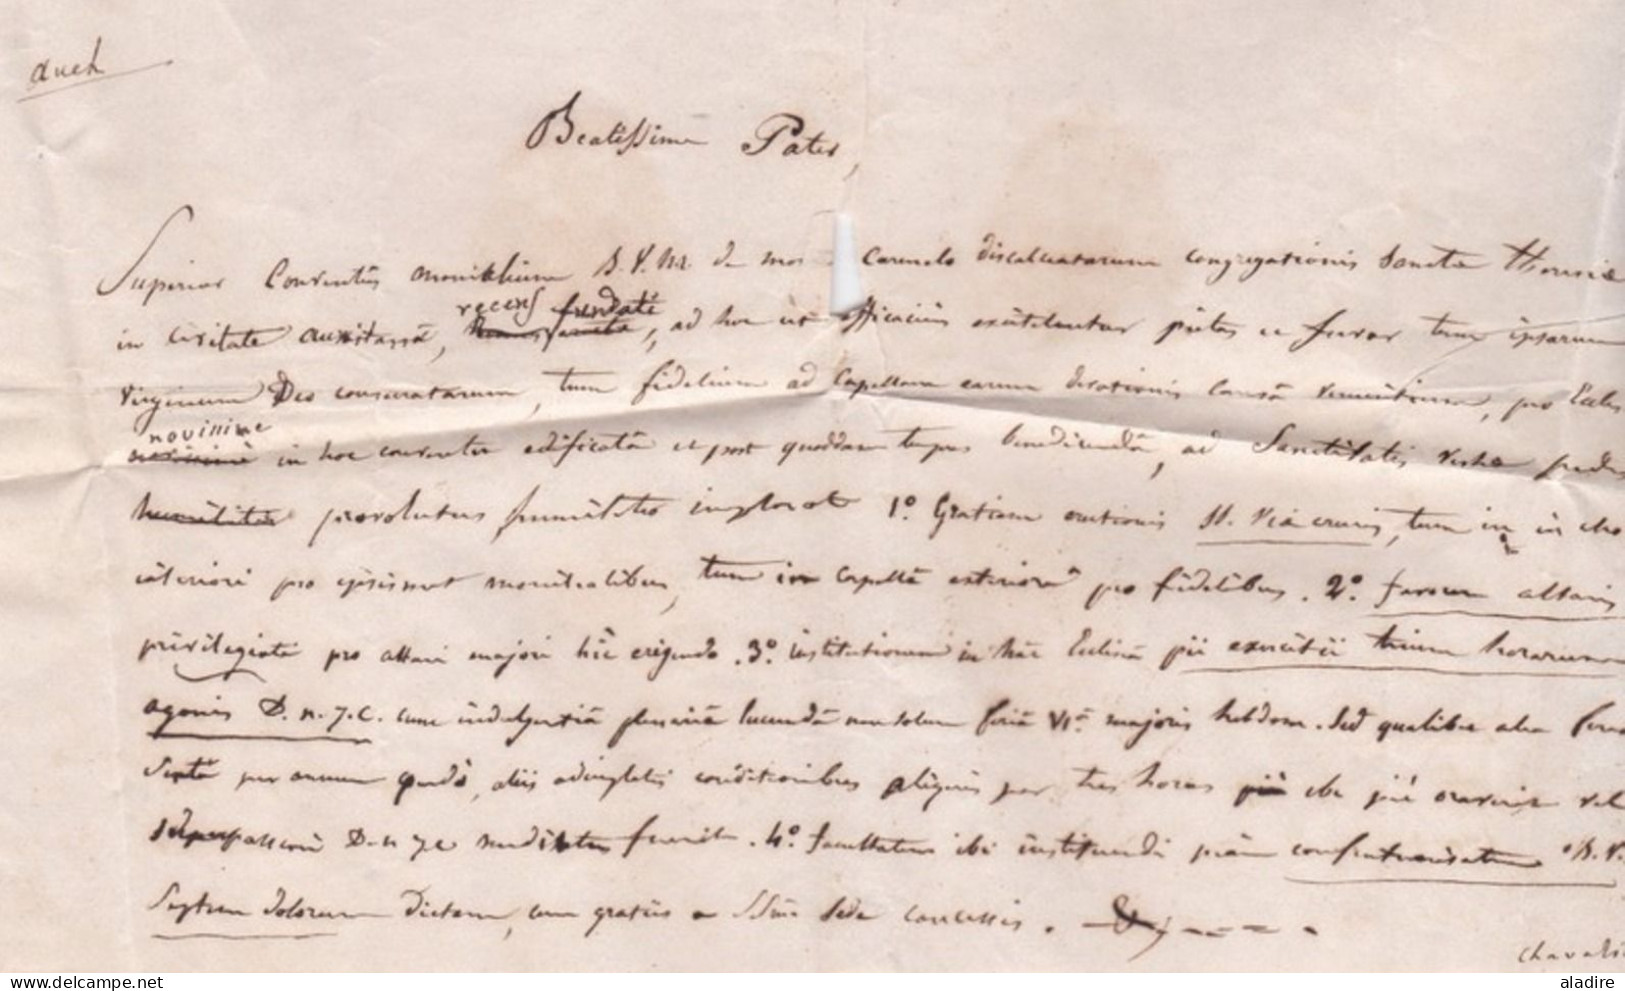 auch
Beatissime Pater,
Superior Conventûs monialium B. V. M. de mon Carmelo discalceatarum congregationis Sanctæ Theresiæ
recens fundati
in civitate auxitanâ, ad hoc ut efficaciùs excitentur pietas et fervor tum ipsarum
virginum Deo consecratarum, tum fidelium ad Capellam earum devotionis causâ venientium, pro Eccles
novissime
in hoc conventu edificatâ et post quoddam tempus benedicendâ, ad Sanctitatis vestræ pedes
provolutus humiliter implorat 1º. Gratiam erectionis st. Viæ crucis, tum in choro
interiori pro ipsismet monialibus, tum in Capellâ exteriori pro fidelibus. 2º. favorem altaris
privilegiati pro altari majori hic erigendo. 3º. institutionem in hâc Ecclesiâ pii exercitii trium horarum
agonis D. n. J. C. cum indulgentiâ plenariâ lucrandâ non solum feriâ VIâ majoris hebdom. sed qualibet alia feria
sextâ per annum quâ, aliis adimpletis conditionibus aliquis per tres horas ibi piè oraverit vel
passioni D. n. J. C. meditatus fuerit. 4º. facultatem ibi instituendi piam confraternitatem B. V.
Septem dolorum dictam, cum gratiis a SSmâ Sede concessis.
aladire